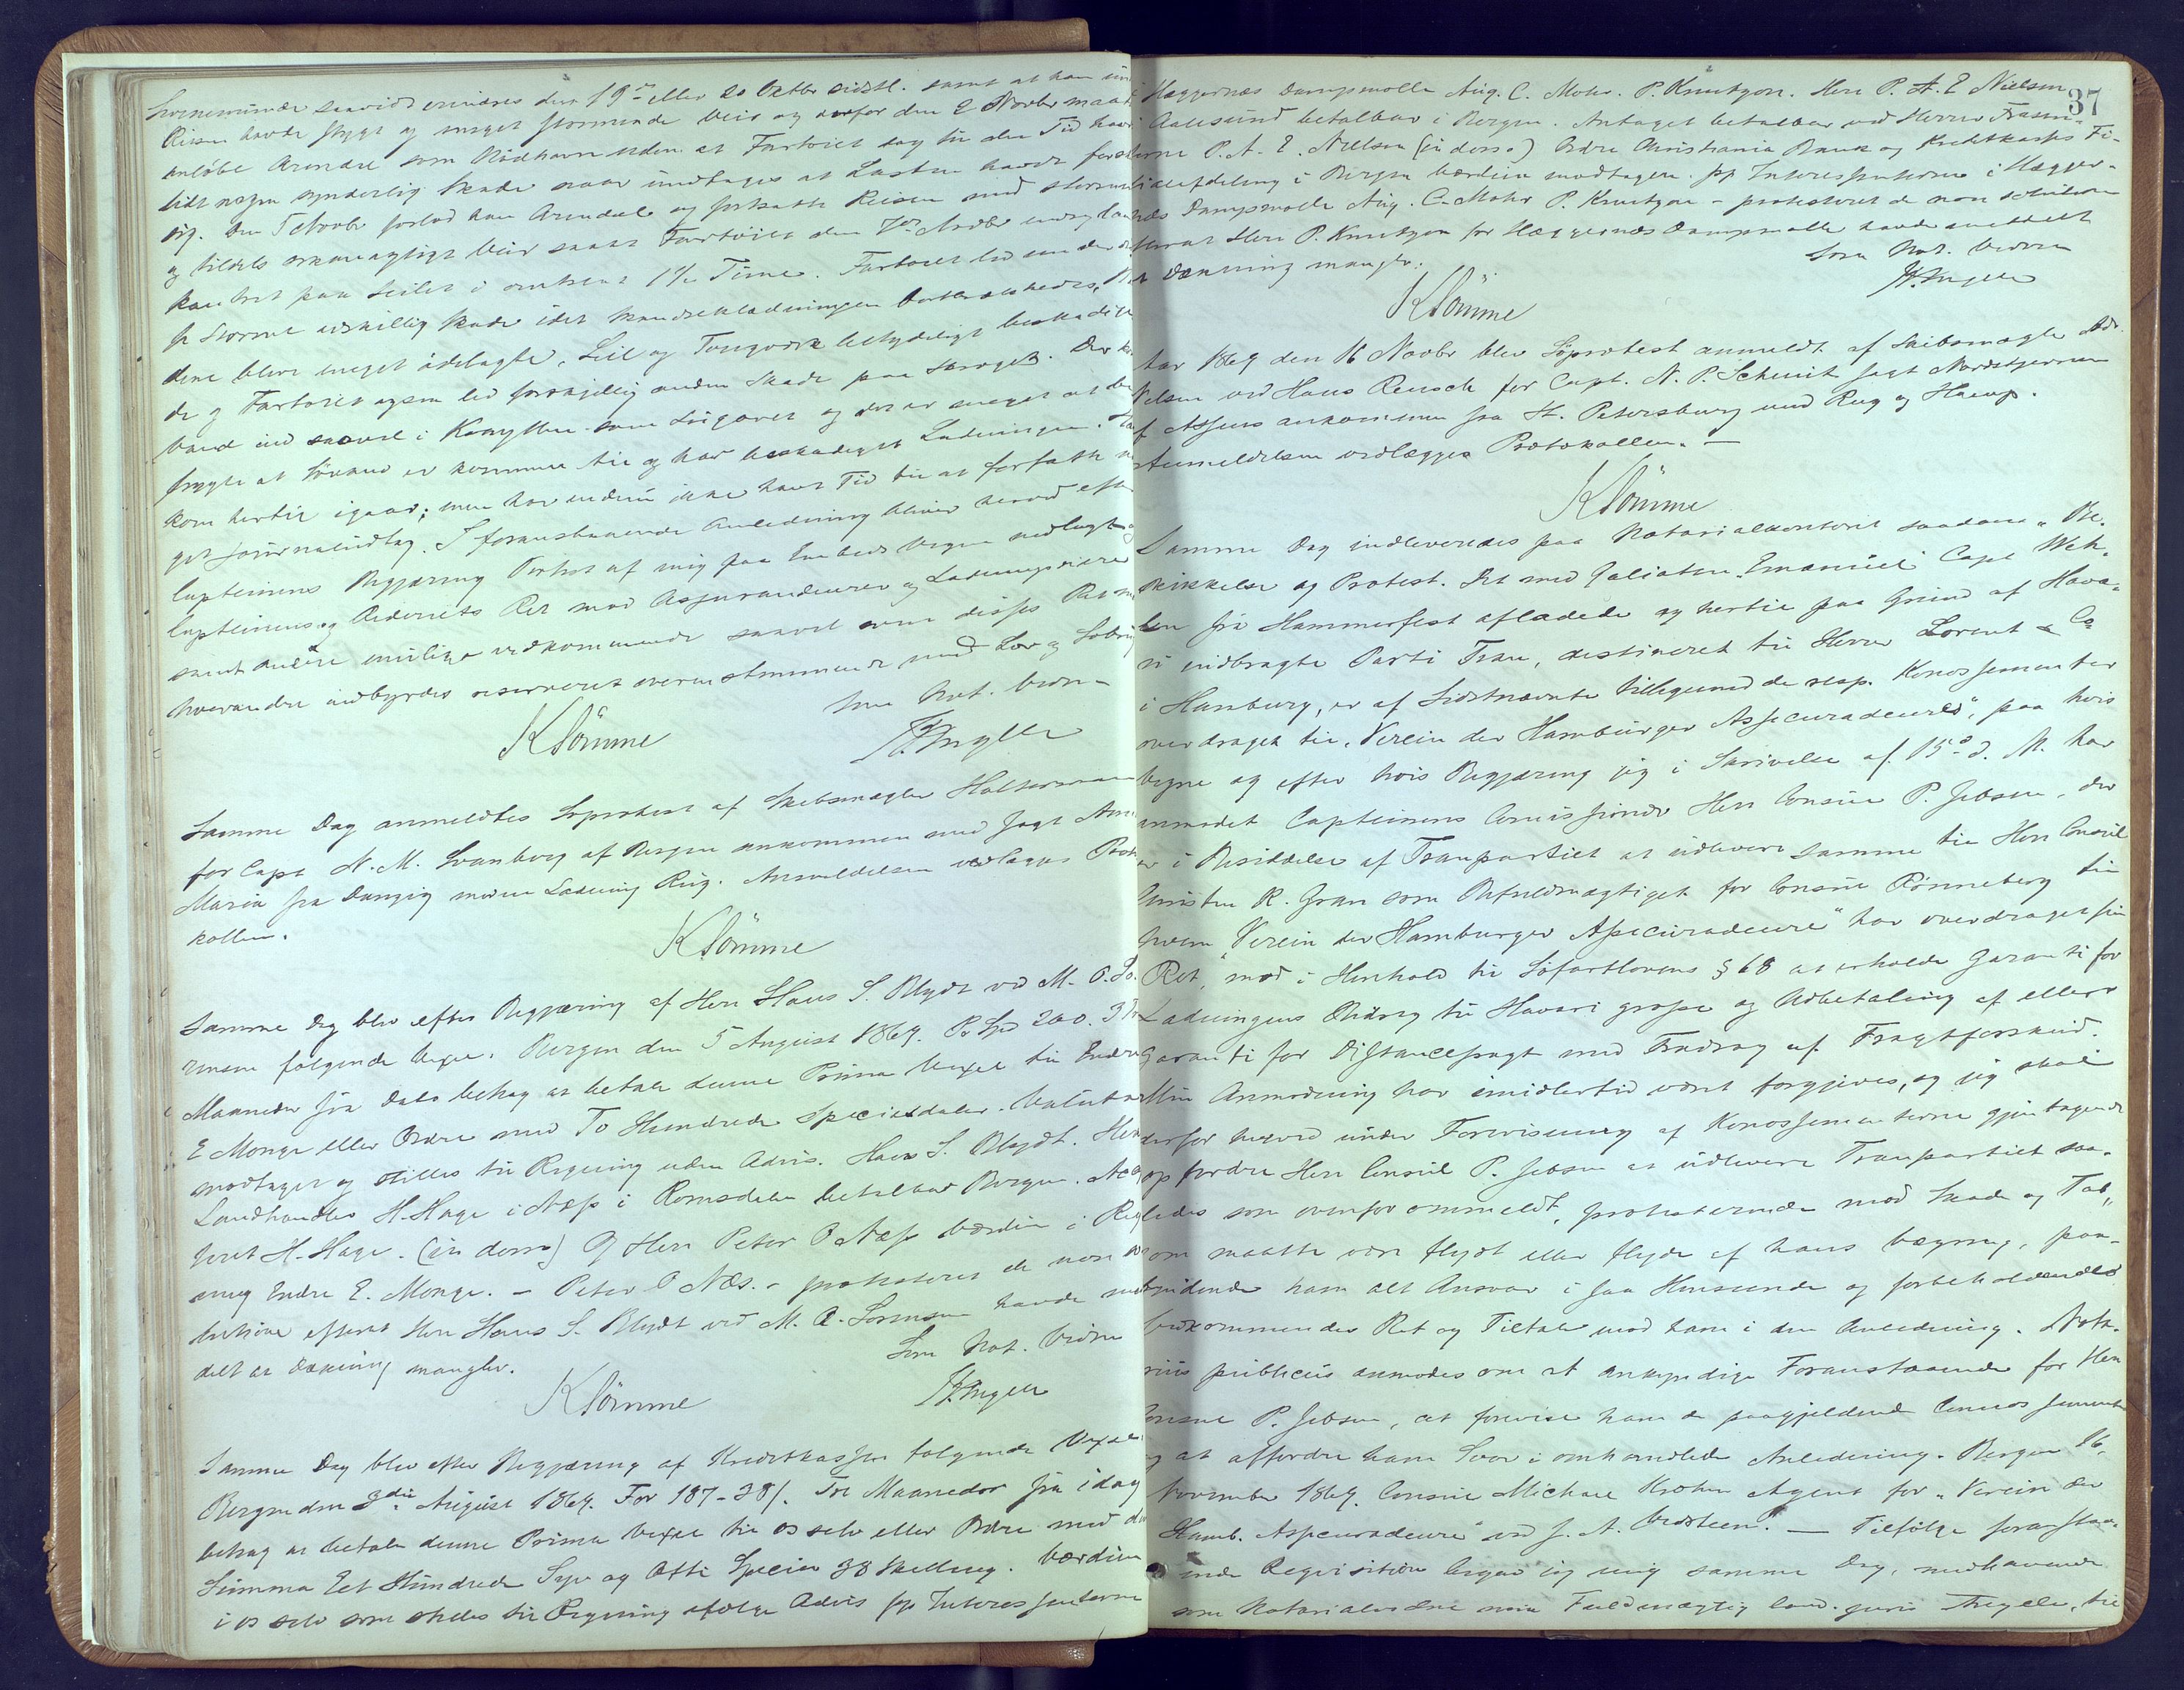 Swinemünde saavidt erindres den 19de eller 20 Oktbr sidstl. samt at han
Reisen havde stygt og meget stormende Veir og derfor den 2 Novbr maatte
anløbe Arendal som Nødhavn uden at Fartøiet dog til den Tid havde
lidt nogen synderlig Skade naar undtages at Lasten havde
sig. Den 5 Novbr forlod han Arendal og fortsatte Reisen med stormende
og tildels orkanagtigt Veir saaat Fartøiet den 7de Novbr
kantret paa Seilet i omtrent 1½ Time. Fartøiet led under
Storme adskillig Skade idet Skandseklædningen
dene bleve meget ødelagte, Seil og Tougværk betydeligt beskadige
de og Fartøiet ogsaa led forskjellig anden Skade paa Skroget. Der
Vand ind saavel i Kahytten som Lugaret og der er meget at be
frygte at Søvand er kommen til og har beskadiget Ladningen.
kom hertil igaar; men har endnu ikke havt Tid til at forfatte
get Journaludtog. I foranstaaende Anledning bliver herved efter
Capteinens Begjæring Protest af mig paa Embeds Vegne nedlagt og
Capteinens og Rederiets Ret mod Assurandeurer og Ladningseiere
samt andre mulige vedkommende saavel som disses Ret mod
hverandre indbyrdes reserveret overensstemmende med Lov og
som Not. Vidne
KSömme
Samme Dag anmeldtes Søprotest af Skibsmægler
for Capt N. M. Svanberg af Bergen ankommen med Jagt Anna
Maria fra Danzig med en Ladning Rug. Anmeldelsen vedlægges Proto
kollen.
KSömme
Samme Dag blev efter Begjæring af Herr Hans S. Blydt ved M. O. So
rensen følgende Vexel. Bergen den 5 August 1869. Po Spd 200. 3
Maaneder fra Dato behag at betale denne Prima Vexel til Endre
E Monge eller Ordre med To Hundrede Speciedaler. Valuta
modtaget og stilles til Regning uden Advis. Hans S. Blydt. Herr
Landhandler H. Hage i Næss i Romsdalen betalbar Bergen. Acc
teret H. Hage. (in dorso) Til Herr Peter O Næss Værdien i Reg
ning Endre E. Monge. – Peter O Næs. – protesteret de non
lutione efterat Herr Hans S. Blydt ved M. O. Sorensen havde med
delt at Dækning mangler.
Som Not. Vidne
KSömme
Samme Dag blev efter Begjæring af Kreditkassen følgende Vexel
Bergen den 3die August 1869. For 187-38/. Tre Maaneder fra idag
behag at betale denne Prima Vexel til os selv eller Ordre med den
Summa Eet Hundrede Syv og Otti Specier 38 Skilling. Værdien
i os selv som stilles til Regning ifølge Advis pp Interessenterne
37
i Hæggernæs Dampmølle Aug. C. Mohr. P. Knutzon. Herr P. A. E Nielsen
Aalesund betalbar i Bergen. Antaget betalbar ved Herrer
P. A. E. Nielsen (in dorso) Ordre Christiania Bank og Kreditkasses Fi-
lialafdeling i Bergen Værdien modtagen. pp Interessenterne i Hægger-
næs Dampmølle Aug. C. Mohr P. Knutzon – protesteret de non solutione
efterat Herr P. Knutzon for Hæggernæs Dampmølle havde meddelt
at Dækning mangler.
Som Not. Vidne
KSömme
Aar 1869 den 16 Novbr blev Søprotest anmeldt af Skibsmægler
Nielsen ved Hans Reusch for Capt. N. P. Schmit Jagt Nordstjernen
af Assens ankommen fra St. Petersburg med Rug og Hamp.
Anmeldelsen vedlægges Protokollen. –
KSömme
Samme Dag indleveredes paa Notarialkontoret saadan „Be-
skikkelse og Protest. Det med Galiasen „Emanuel" Capt Weh-
len fra Hammerfest afladede og hertil paa Grund af Hava-
ri indbragte Parti Tran, destineret til Herrer Lorent & Co
i Hamburg, er af Sidstnævnte tilligemed de resp. Konossementer
overdraget til „Verein der Hamburger Assecuradeure", paa hvis
Vegne og efter hvis Begjæring jeg i Skrivelse af 15de d. M. har
anmodet Capteinens Comissionær Herr Consul P. Jebsen, der
er i Besiddelse af Tranpartiet at udlevere samme til Herr Consul
Christen K. Gran som Befuldmægtiget for Consul Rønneberg til
hvem „Verein der Hamburger Assecuradeure" har overdraget sin
Ret, mod i Henhold til Søfartslovens § 68 at erholde Garanti for
Ladningens Bidrag til Havari grosse og Udbetaling af eller
Garanti for Distancefragt med Fradrag af Fragtforskud.
Min Anmodning har imidlertid været forgjæves, og jeg skal
derfor herved under Forevisning af Konossementerne gjentagende
opfordre Herr Consul P. Jebsen at udlevere Tranpartiet saa-
ledes som ovenfor ommeldt, protesterende mod Skade og Tab,
som maatte være flydt eller flyde af hans Vægring, paa-
bydende ham alt Ansvar i saa Henseende og forbeholdende
Vedkommendes Ret og Tiltale mod ham i den Anledning. Nota-
rius publicus anmodes om at ankyndige Foranstaaende for Herr
Consul P. Jebsen, at forevise ham de paagjeldende Connossementer
og at affordre ham Svar i omhandlede Anledning. Bergen 16
November 1869. Consul Michael Krohn Agent for „Verein der
Hamb. Assecuradeure" ved J. A. Vedsteen". – Tilfølge foranstaa-
ende Requisition begav jeg mig samme Dag, medhavende
som Notarialvidne min Fuldmægtig Cand. juris Thygelle, til